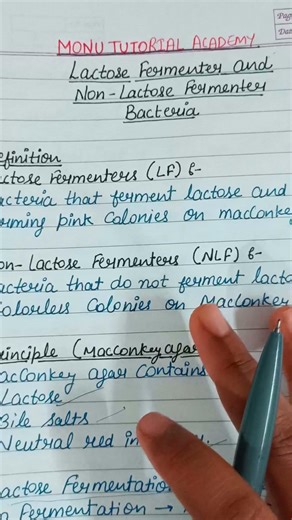 Pag
Dat
MONU TUTORIAL ACADEMY
Lactose Fermenter and
Non-Lactose Fermenter
Bacteria
efinition
ctose Fermenters (LF) :-
acteria that ferment lactose and
orming pink Colonies on macConke
on-Lactose Fermenters (NLF) :-
acteria that do not ferment lacto
olorless Colonies on MacConkey
inciple (MacConkey agar
acConkey agar Contains
Lactose
Bile salts
Neutral red in
actose Fermentation
Fermentation →